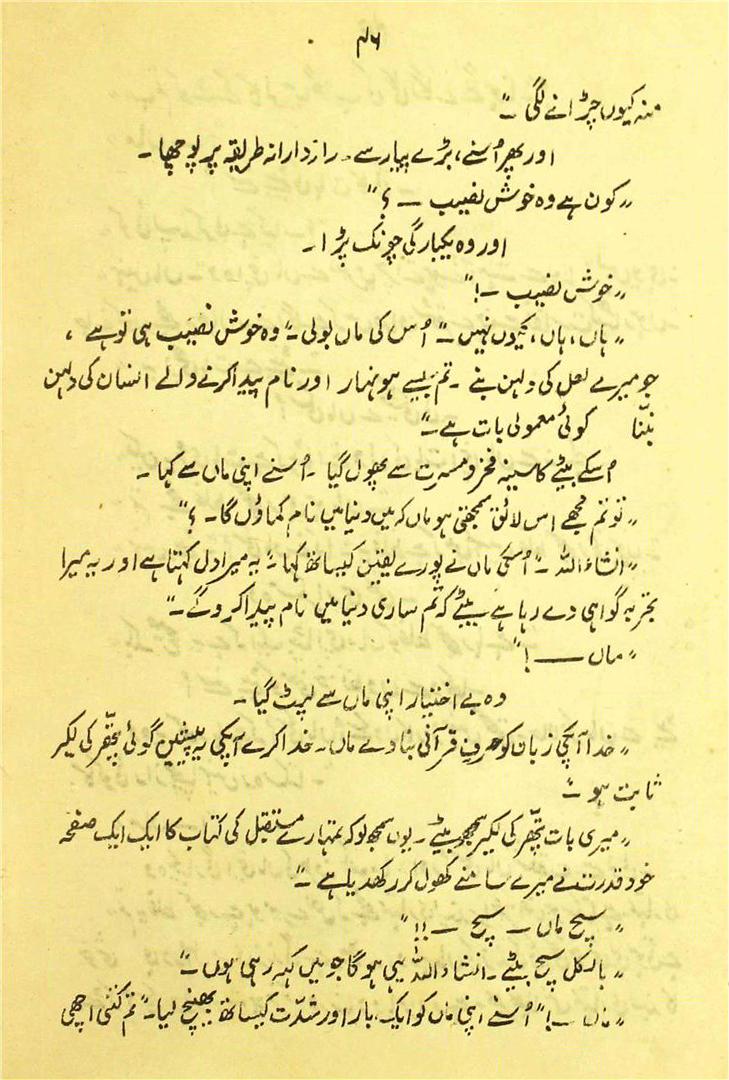 ۴۶
منہ کیوں چڑانے لگی ۔"
اور پھر اُسنے، بڑے پیار سے۔ رازدارانہ طریقہ پر پوچھا۔
"کون ہے وہ خوش نصیب ــ ؟"
اور وہ یکبارگی چونک پڑا۔
"خوش نصیب ــ !"
"ہاں، ہاں، کیوں نہیں ۔" اُس کی ماں بولی۔" وہ خوش نصیب ہی تو ہے ،
جو میرے لعل کی دلہن بنے ۔ تم جیسے ہونہار اور نام پیدا کرنے والے انسان کی دلہن
بننا کوئی معمولی بات ہے ۔"
اُسکے بیٹے کا سینہ فخر و مسرت سے پھول گیا ۔ اُسنے اپنی ماں سے کہا ۔
"تو تم مجھے اس لائق سمجھتی ہو ماں کہ میں دنیا میں نام کماؤں گا ۔ ؟"
"انشاء اللہ ۔" اُسکی ماں نے پورے یقین کیساتھ کہا ۔" یہ میرا دل کہتا ہے اور یہ میرا
تجربہ گواہی دے رہا ہے بیٹے کہ تم ساری دنیا میں نام پیدا کروگے ۔"
"ماں ــــ !"
وہ بے اختیار اپنی ماں سے لپٹ گیا ۔
"خدا آپکی زبان کو حرفِ قرآنی بنا دے ماں۔ خدا کرے آپکی یہ پیشین گوئی پتھّر کی لکیر
ثابت ہو ۔"
"میری بات پتھّر کی لکیر سمجھو بیٹے ۔ یوں سمجھ لو کہ تمہارے مستقبل کی کتاب کا ایک ایک صفحہ
خود قدرت نے میرے سامنے کھول کر رکھدیا ہے ۔"
"سچ ماں ــ سچ ــ !!"
"بالکل سچ بیٹے ۔ انشاء اللہ یہی ہوگا جو میں کہہ رہی ہوں ۔"
"ماں ــ !" اُسنے اپنی ماں کو ایک بار اور شدّت کیساتھ بھینچ لیا ۔" تم کتنی اچھی